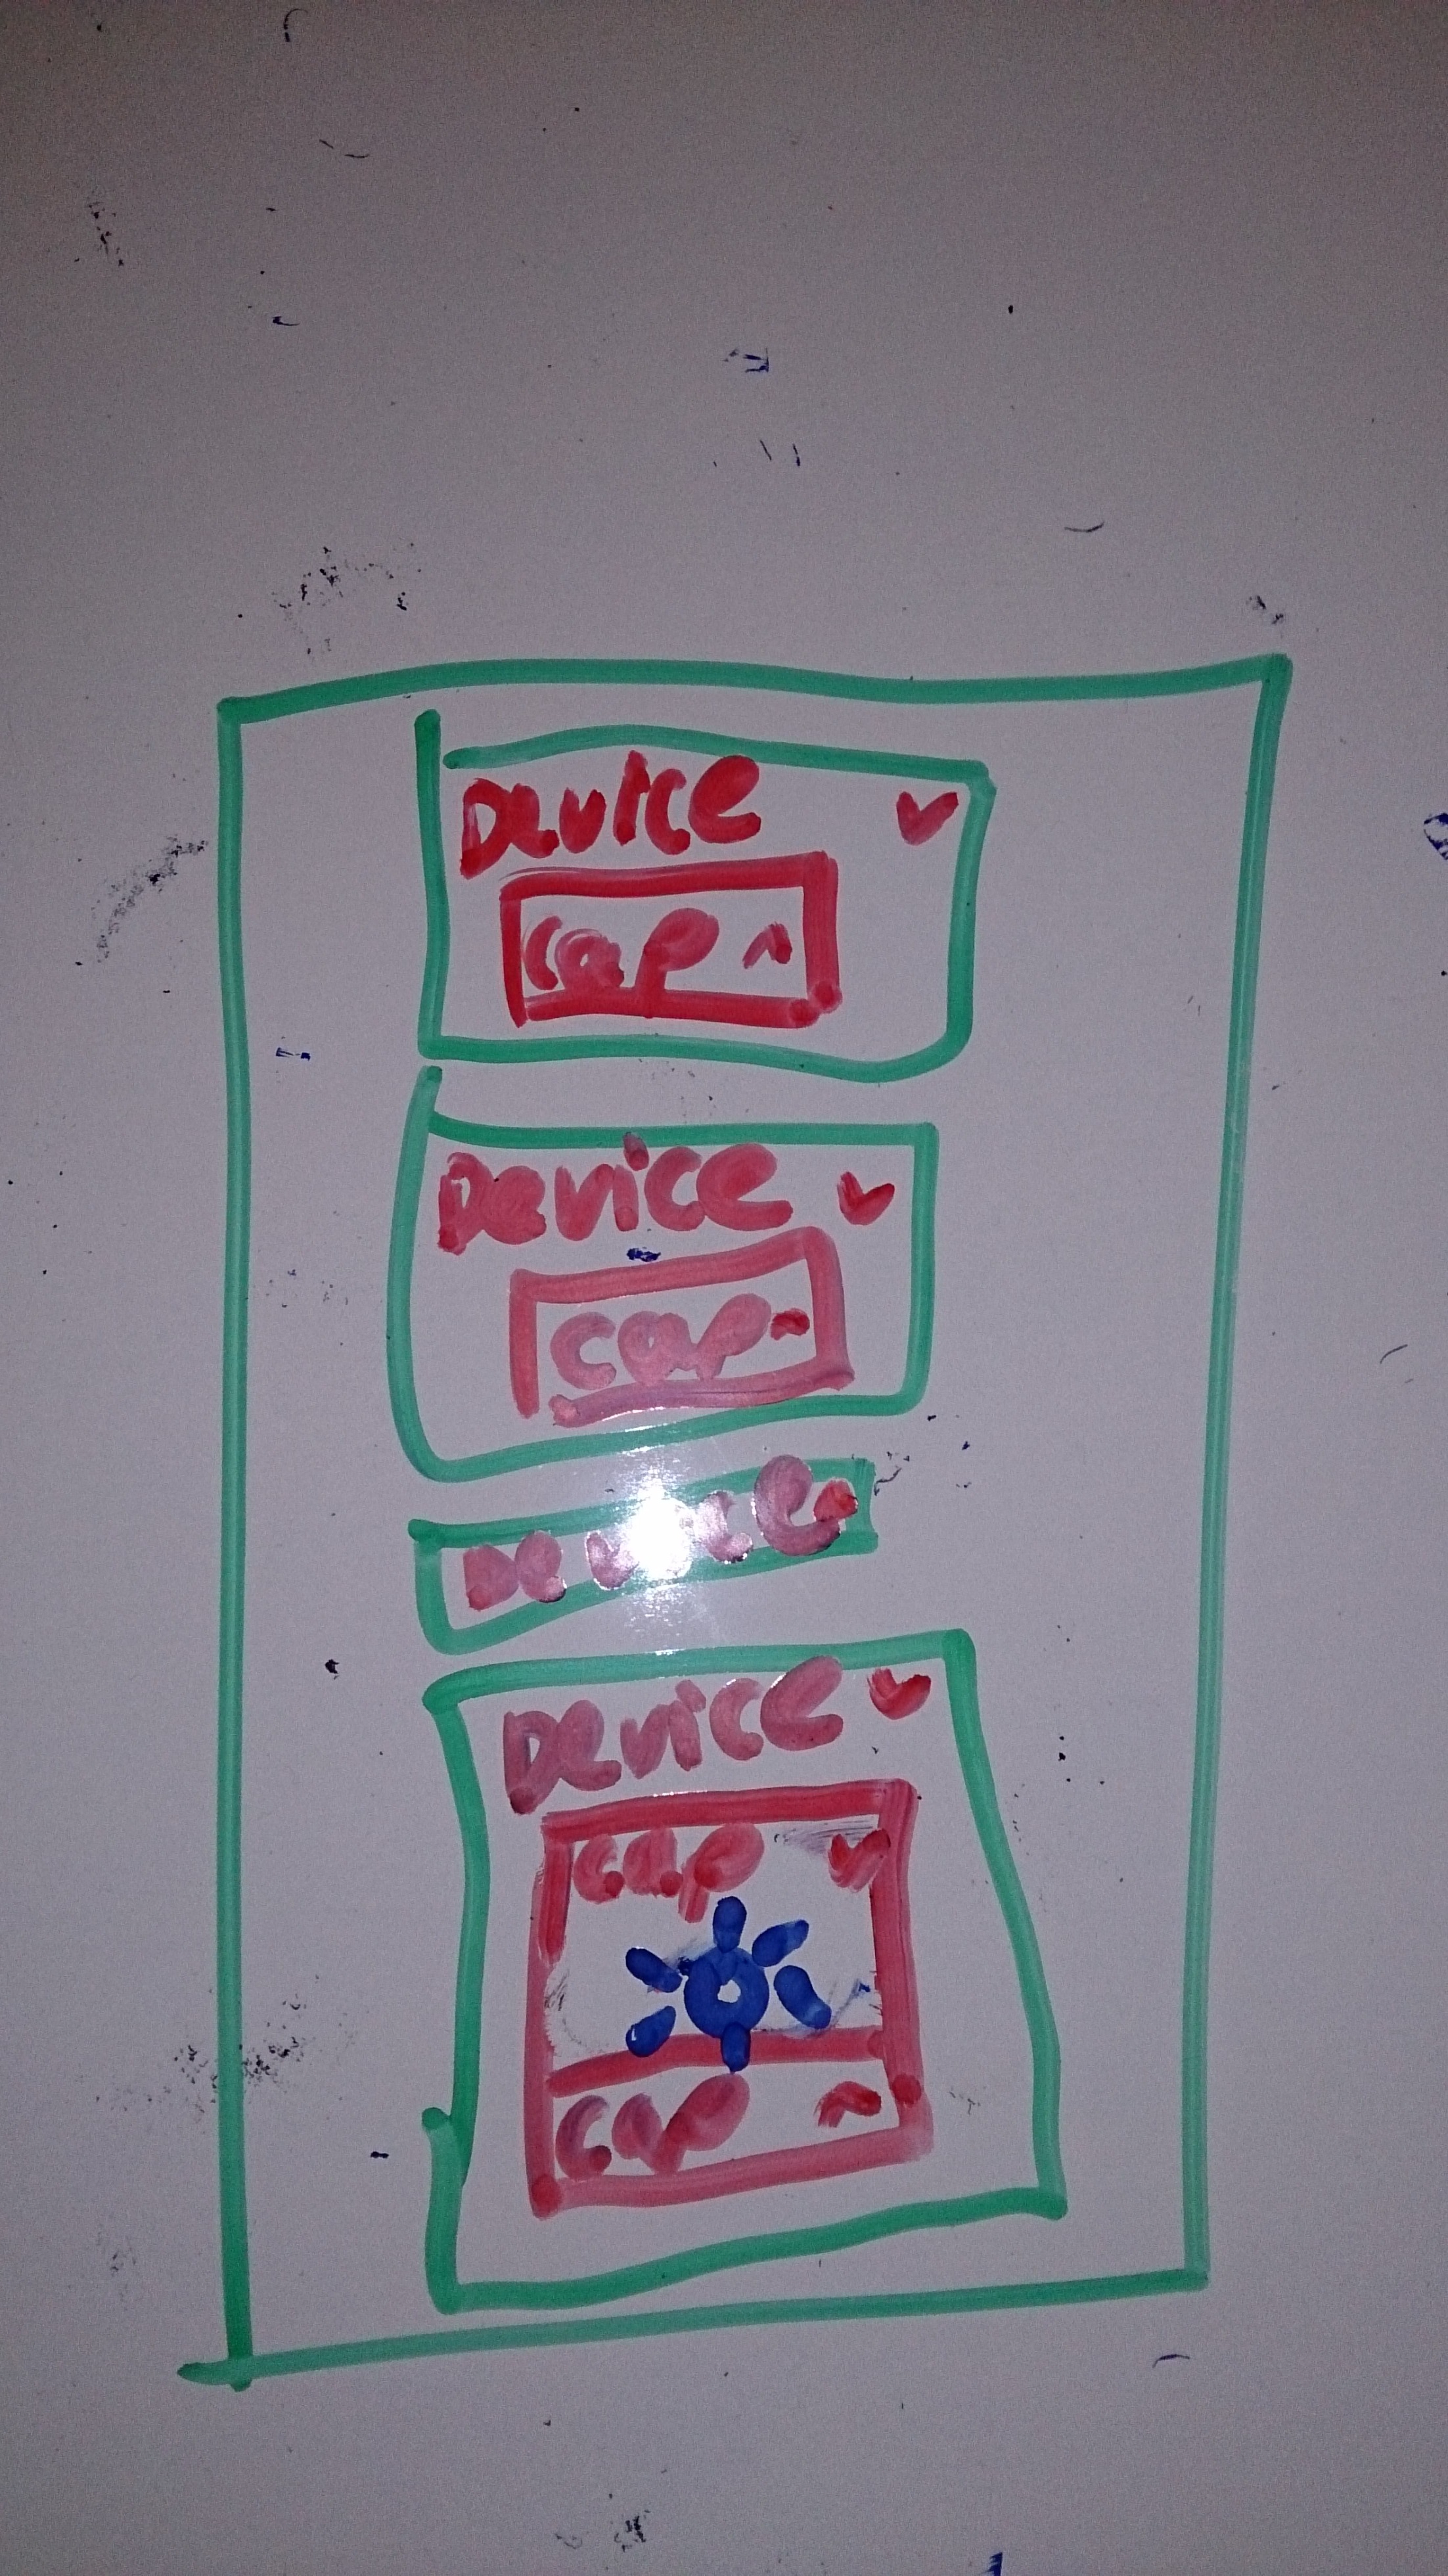 Device
cap
Device
cap
Device
Device
cap
cap